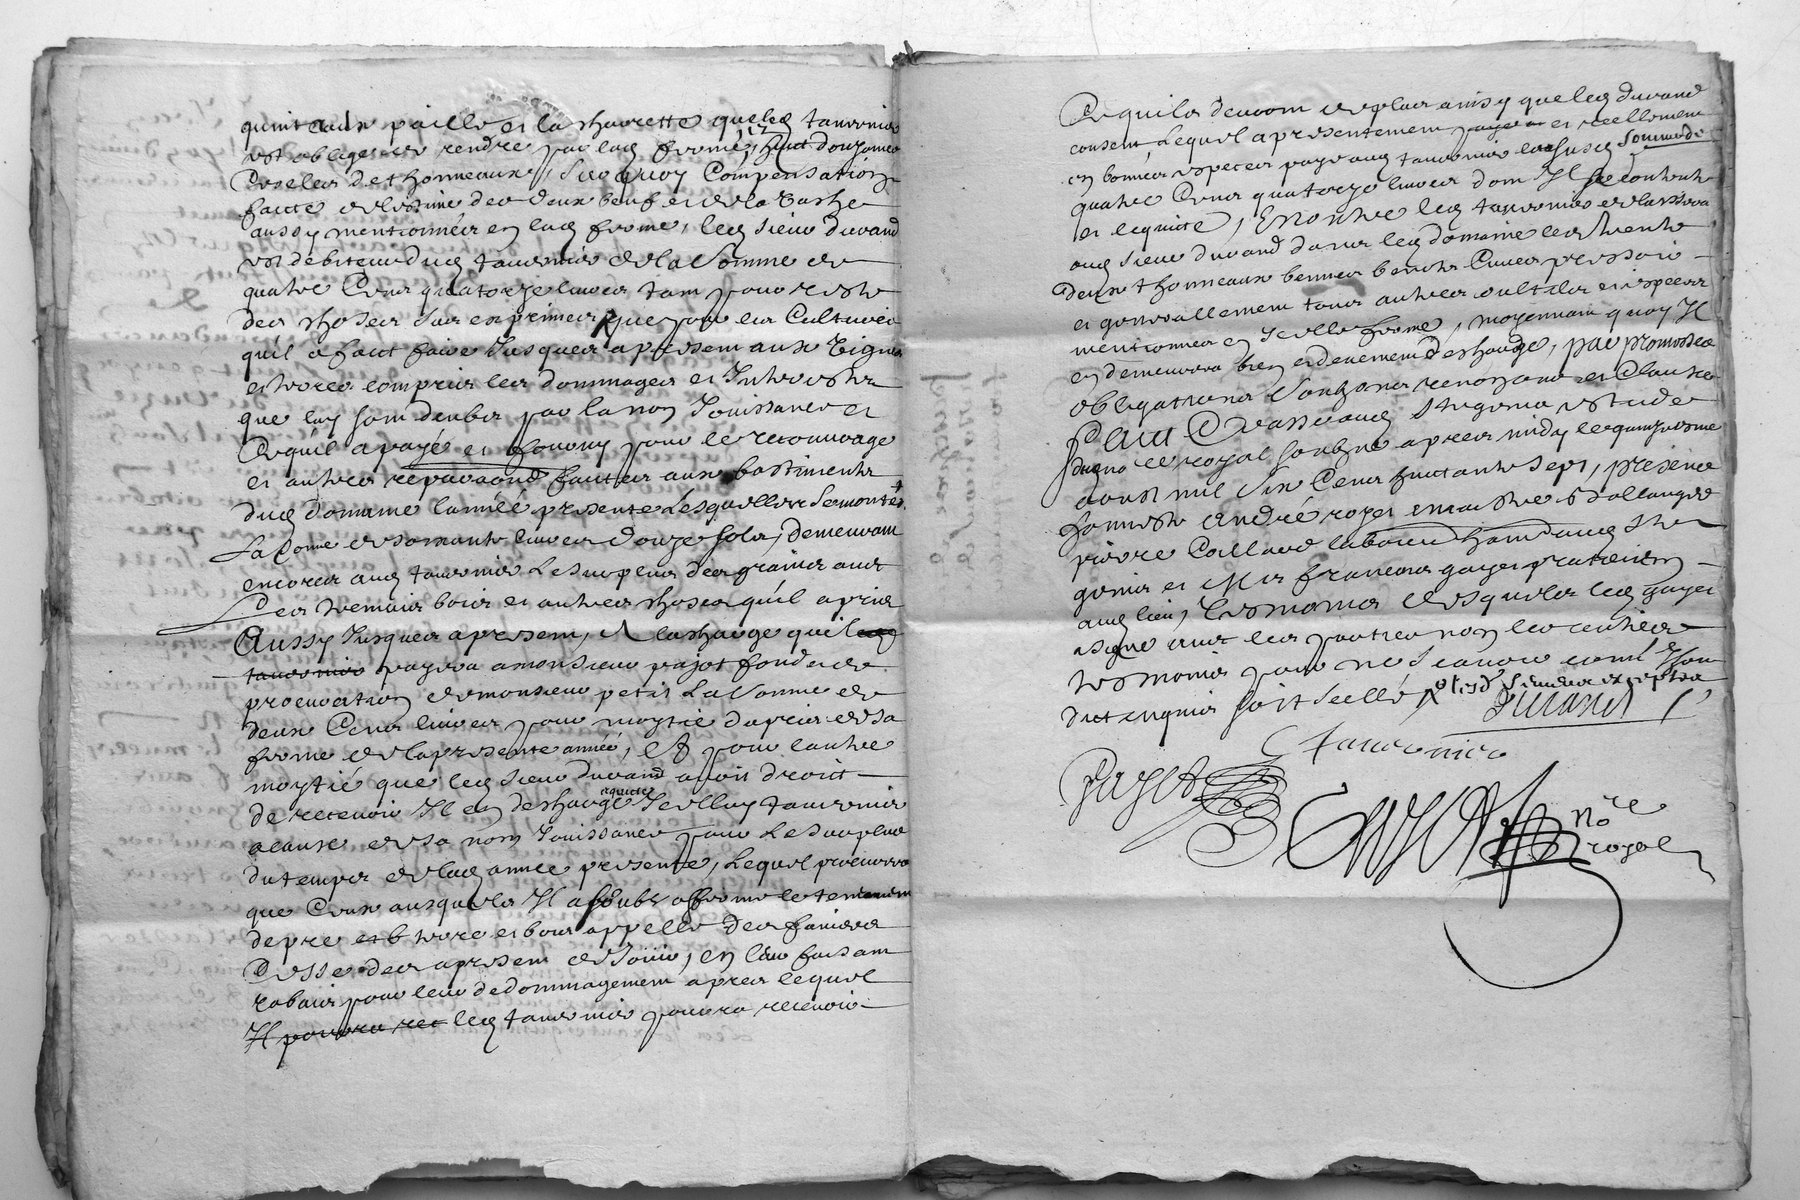 quintaux paille et la charrette que led tavernier
est obligé de rendre par lad ferme, huit douzaines
cercles de thonneaux, surquoy Compensation
faitte de lestime des deux beufs et de la vache
aussy mentionnés en lad ferme, led sieur durand
est debiteur dud tavernier de la somme de
quatre Cens quatorze livres tant pour reste
des choses sus exprimées que pour les Cultures
qu'il a faut faire Jusques apresent aux vignes
et terres compris les dommages et Interests
que luy sont deubs par la non Jouissance et
Ce qu'il a payé et fourny pour le recouvrage
et autres reparaons faittes aux bastiments
dud domaine l'année presente Lesquelles se montent
La somme de soixante livres douze sols, demeurant
encores aud tavernier Le surplus des grains aud
Les tremois bois et autres choses qu'il a pris
Aussy Jusques apresent, et la charge qu'il led
tavernier payera a monsieur pajot fondé de
procuration de monsieur petit La somme de
deux Cens livres pour moytié du prix de sa
ferme de la presente année, et pour l'autre
moytié que led sieur durand avoit droit
de recevoir Il en descharge acquitte Icelluy tavernier
acause de sa non Jouissance pour Le surplus
du temps de lad année presente, Lequel procurera
que Ceux ausquels Il a soubs afferme le tenement
de pré et terre et bois appellé des fanieres
Cesse des apresent de Jouir, en leur faisant
rabais pour leur dedommagement apres lequel
Il pourra rec led tavernier pourra recevoir
Ce quils devront de plus ainsy que led durand
consent, Lequel apresentement paye et reellement
en bonnes especes paye aud tavernier la susd somme de
quatre Cens quatorze livres dont Il se contente
et lequitte, Et outre led tavernier delaissera
aud sieur durand dans led domaine les trente
deux thonneaux bennes benots Cuves pressoir
et generallement tous autres outils et especes
mentionnées en Icelle ferme, moyennant quoy Il
en demeurera bien et deuement deschargé, par promesses
obligations soubzmis renonzons et Clauses
faict Et passé aud St genis estude
dugno re royal soubné apres midy le quinziesme
aoust mil six Cens huictante sept, presence
honneste andré royet maistre
pierre Caillard laboureur habitans aud St
genis et Mes francois gayet praticien
aud lieu, tesmoins desquels led gayet
signé avec les parties non les autres
tesmoins pour ne scavoir
duit enquis soit seellé
Durand
Tavernier
Gayet
Cuzet no re
royal